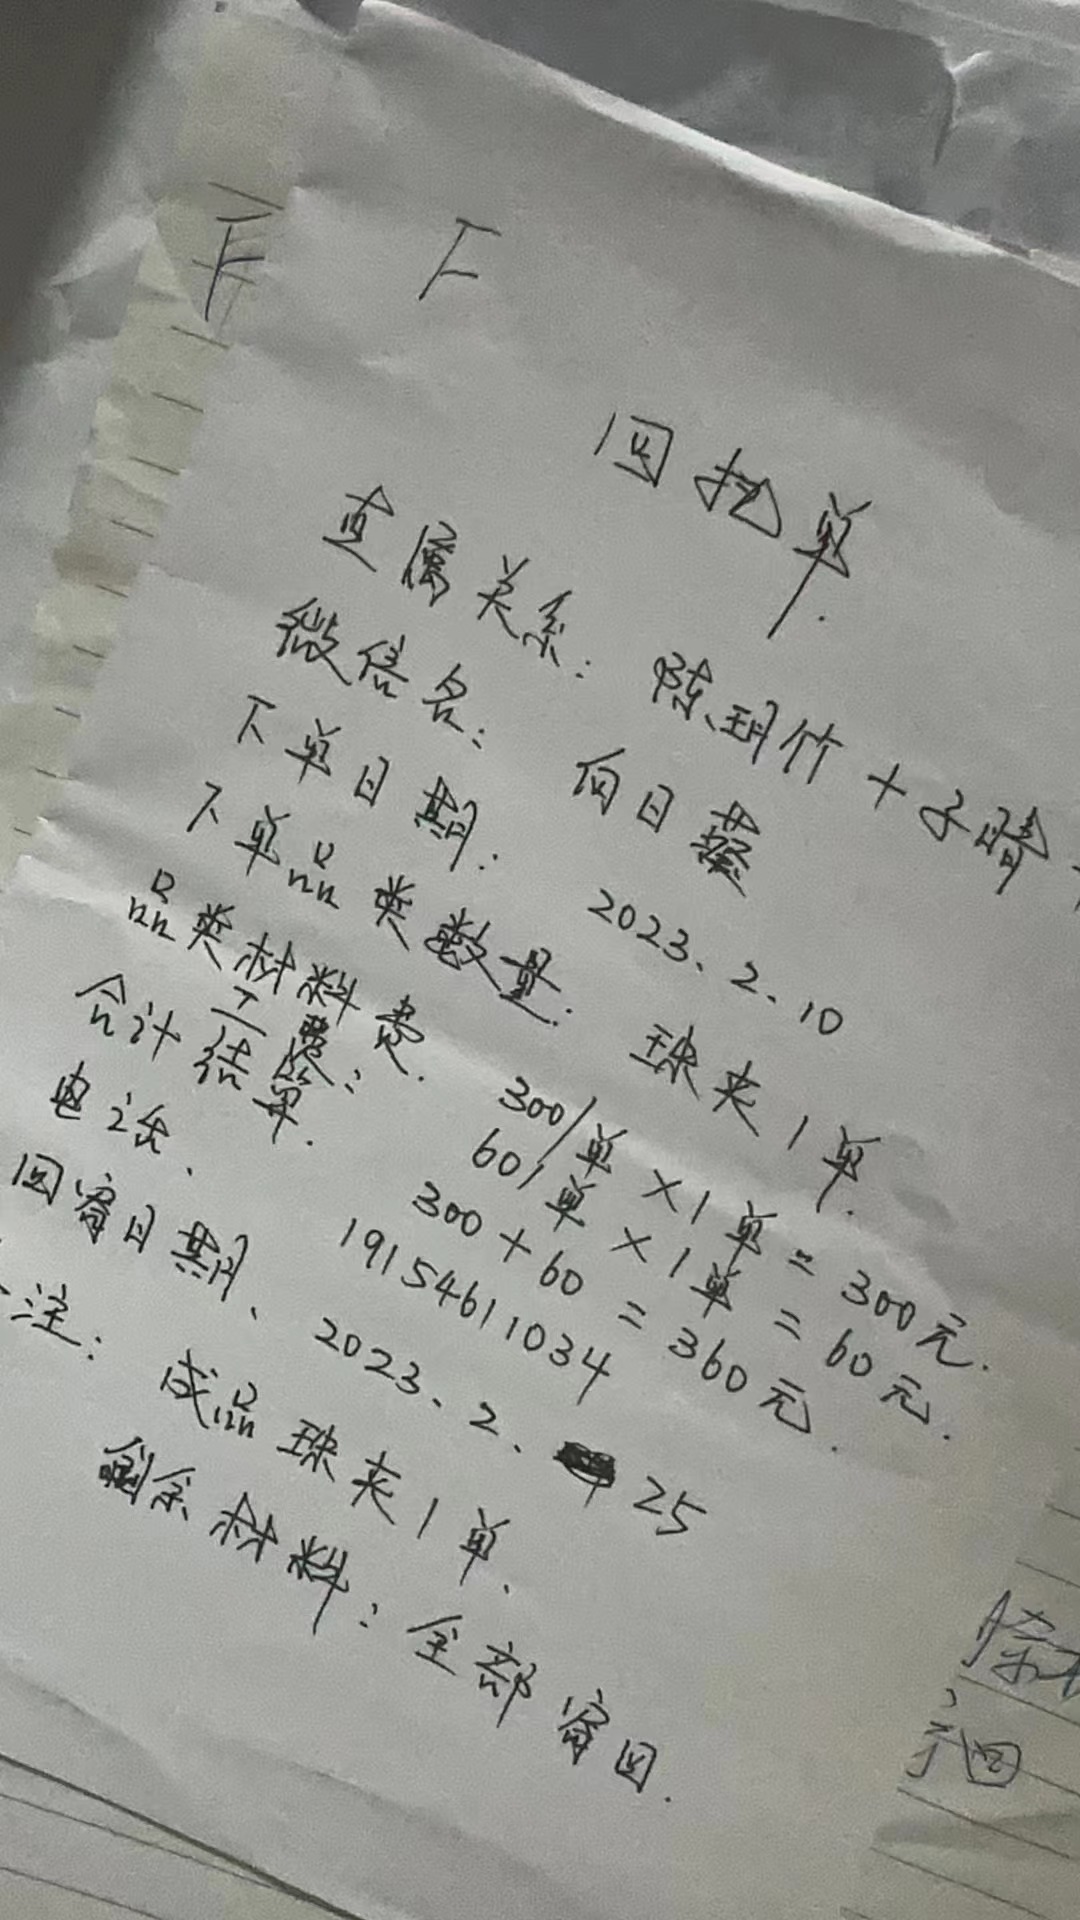 F F
回执单.
直属关系: 陈玥竹+子晴
微信名: 向日葵
下单日期: 2023.2.10
下单品类数量: 珠夹1单.
品类材料费: 300/单×1单=300元.
工费: 60/单×1单=60元.
合计结算: 300+60=360元.
电话、 19154611034
回寄日期、 2023、2、25
注: 成品珠夹1单、
剩余材料: 全部寄回.